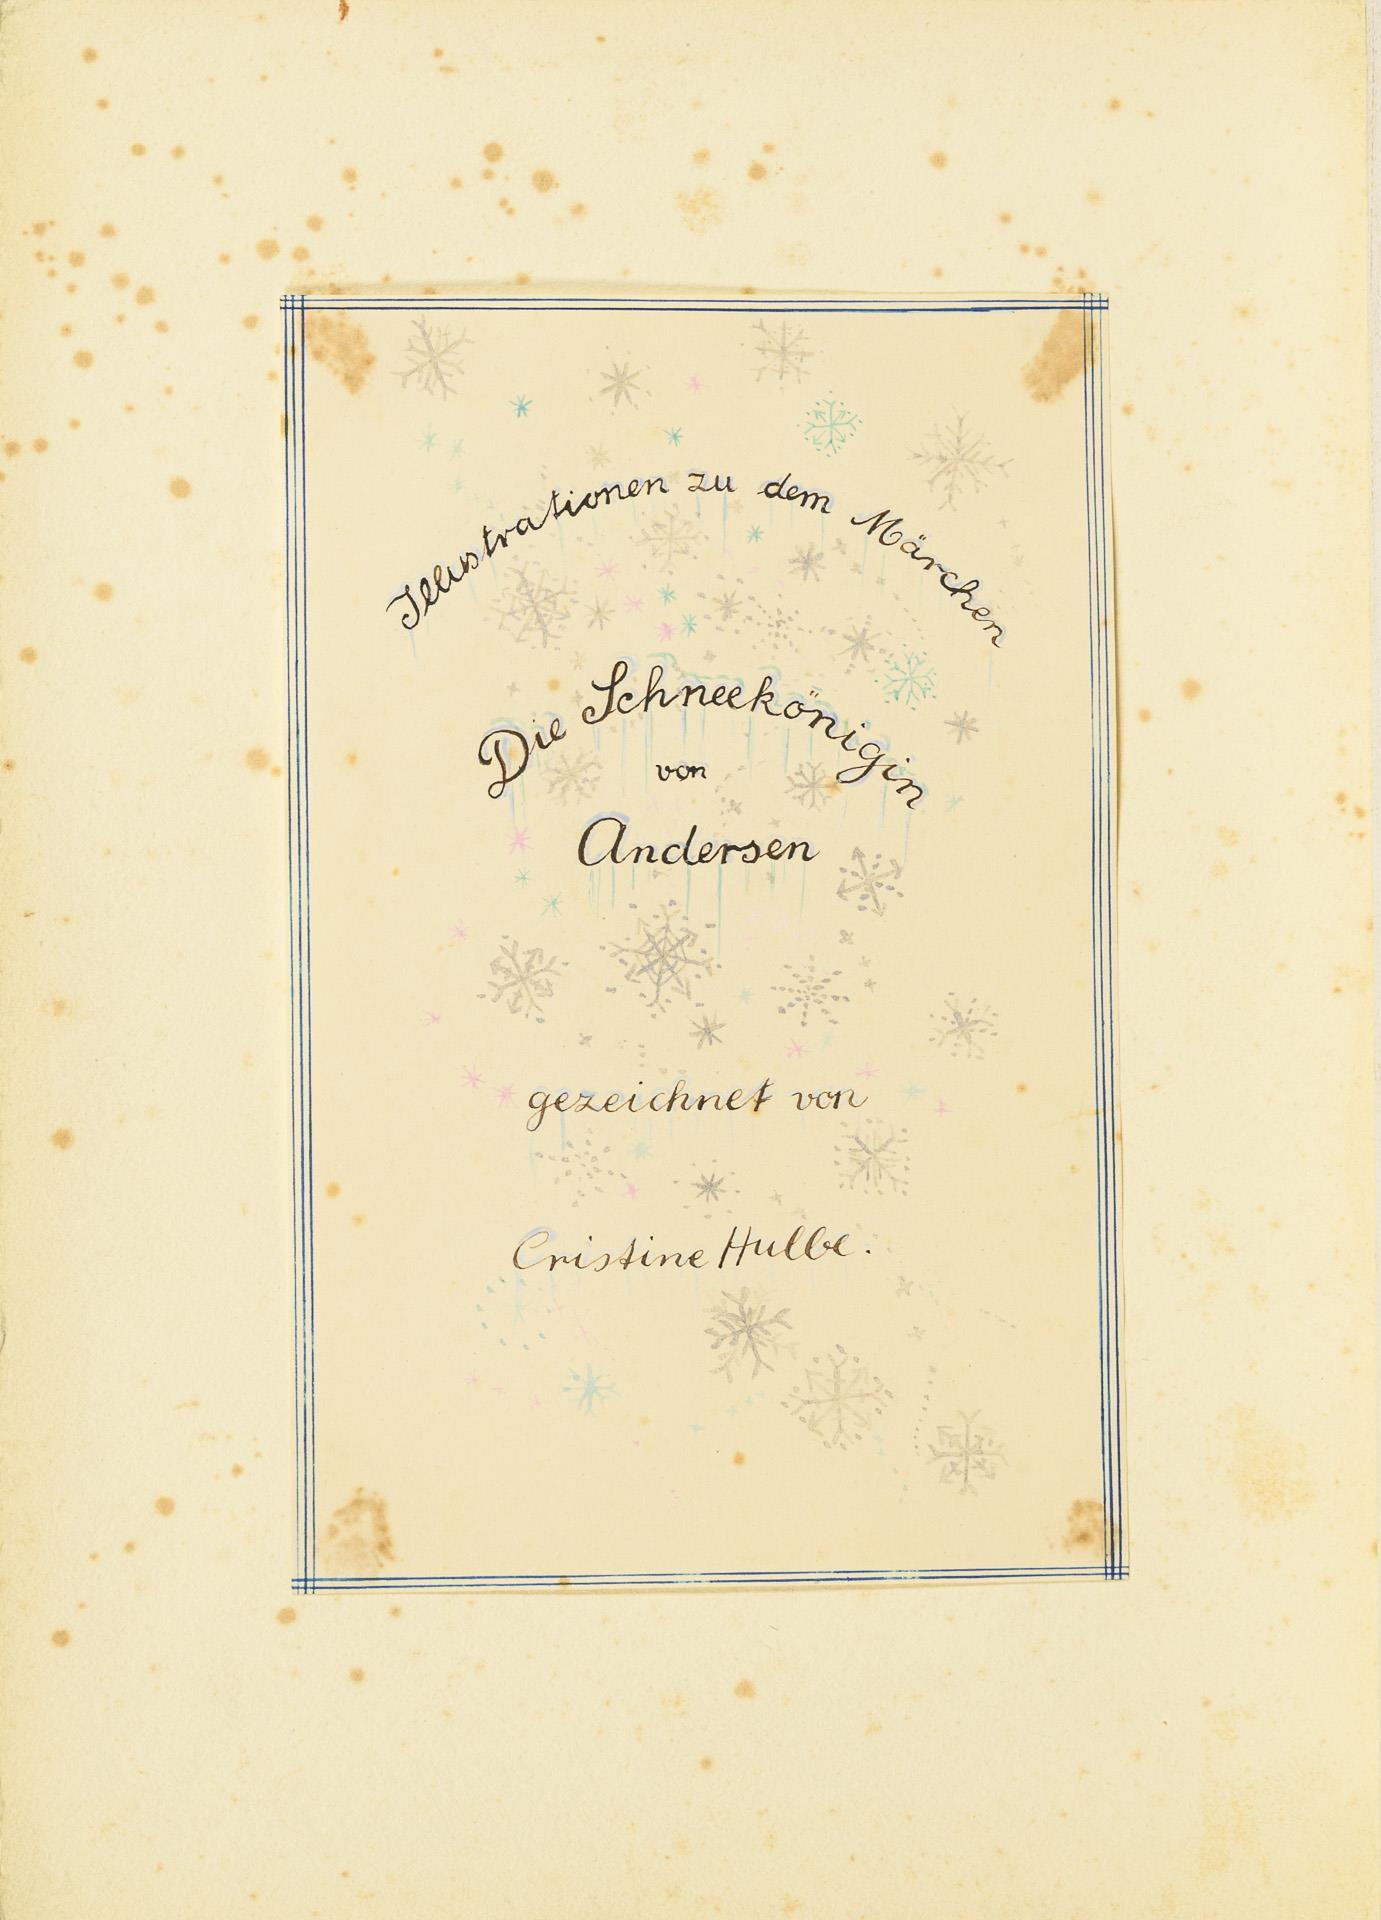 Illustrationen zu dem Märchen
Die Schneekönigin
von
Andersen
gezeichnet von
Cristine Hulbe.